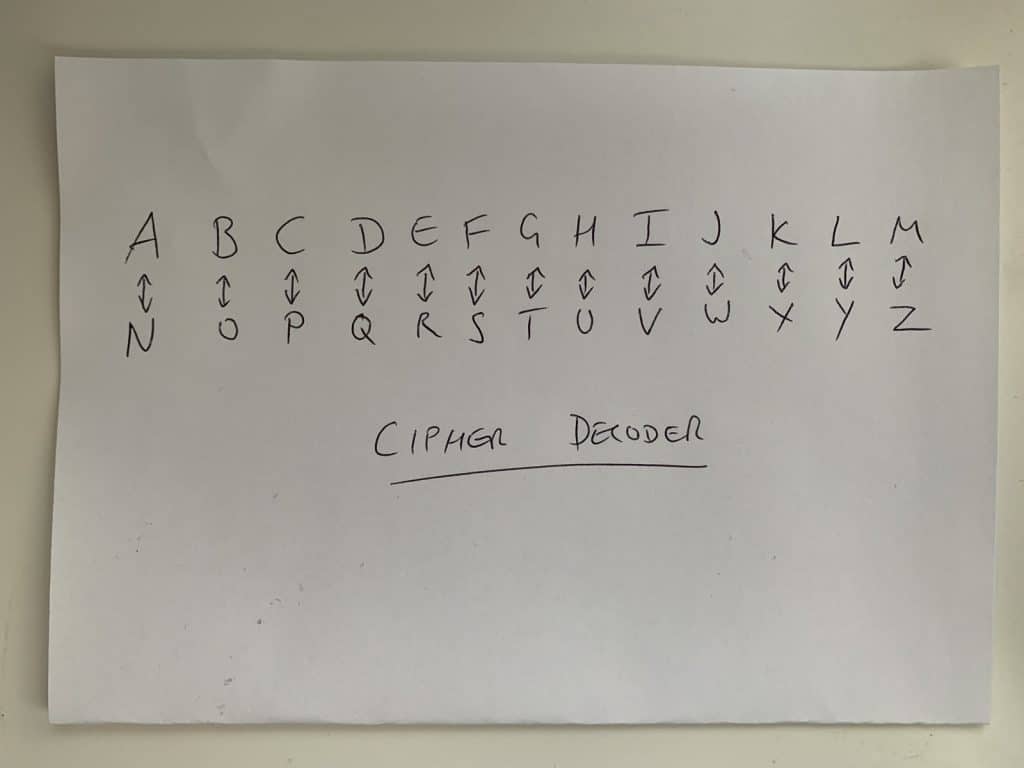 A B C D E F G H I J K L M
↕ ↕ ↕ ↕ ↕ ↕ ↕ ↕ ↕ ↕ ↕ ↕ ↕
N O P Q R S T U V W X Y Z
CIPHER DECODER